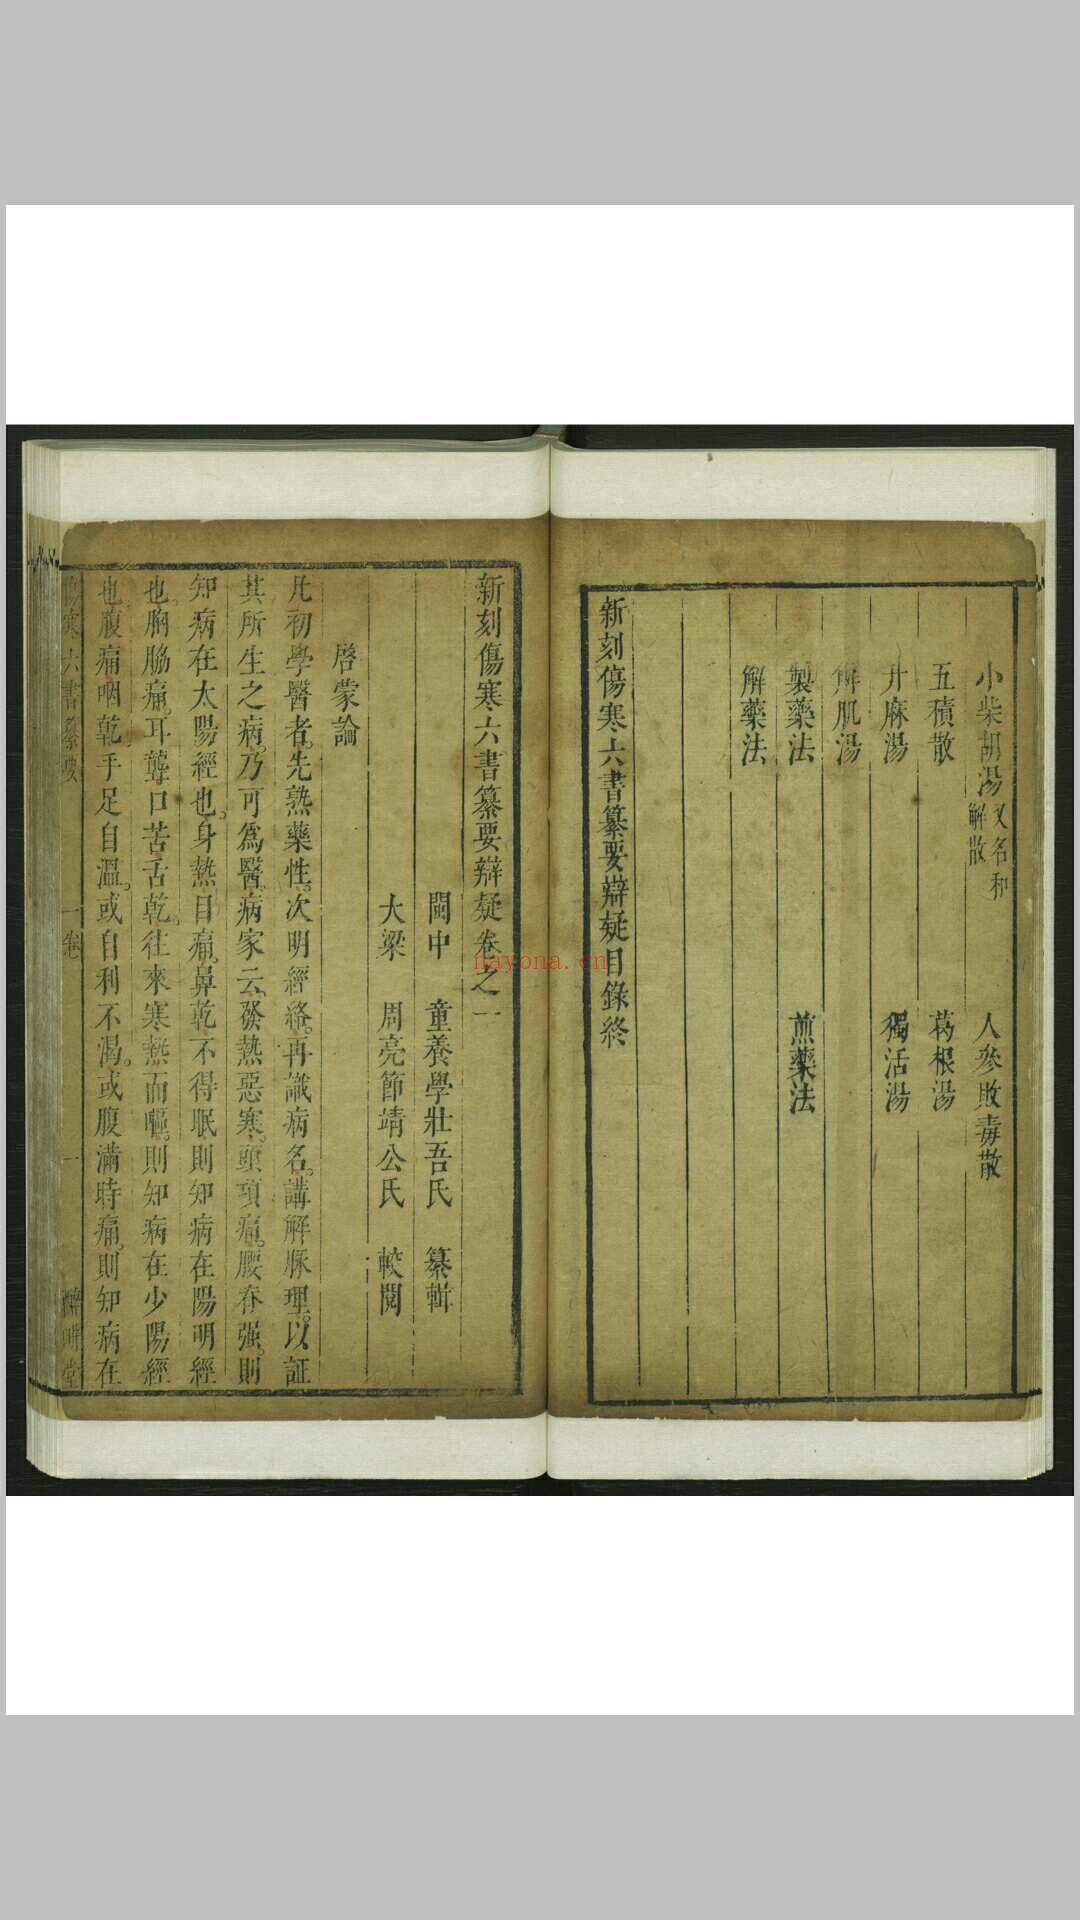 小柴胡湯 又名和解散 人參敗毒散
五積散 葛根湯
升麻湯 獨活湯
解肌湯
製藥法 煎藥法
解藥法
新刻傷寒六書纂要辯疑目錄終
新刻傷寒六書纂要辯疑卷之一
閩中 童養學壯吾氏 纂輯
大梁 周亮節靖公氏 較閱
啓蒙論
凡初學醫者。先熟藥性。次明經絡。再識病名。講解脉理。以証
其所生之病。乃可爲醫。病家云。發熱惡寒。頭項痛。腰脊强。則
知病在太陽經也。身熱目痛。鼻乾不得眠。則知病在陽明經
也。胸脇痛。耳聾口苦舌乾。往來寒熱而嘔。則知病在少陽經
也。腹痛咽乾手足自溫。或自利不渴。或腹滿時痛。則知病在
傷寒六書纂要 一卷 一 堂
nayona.cn